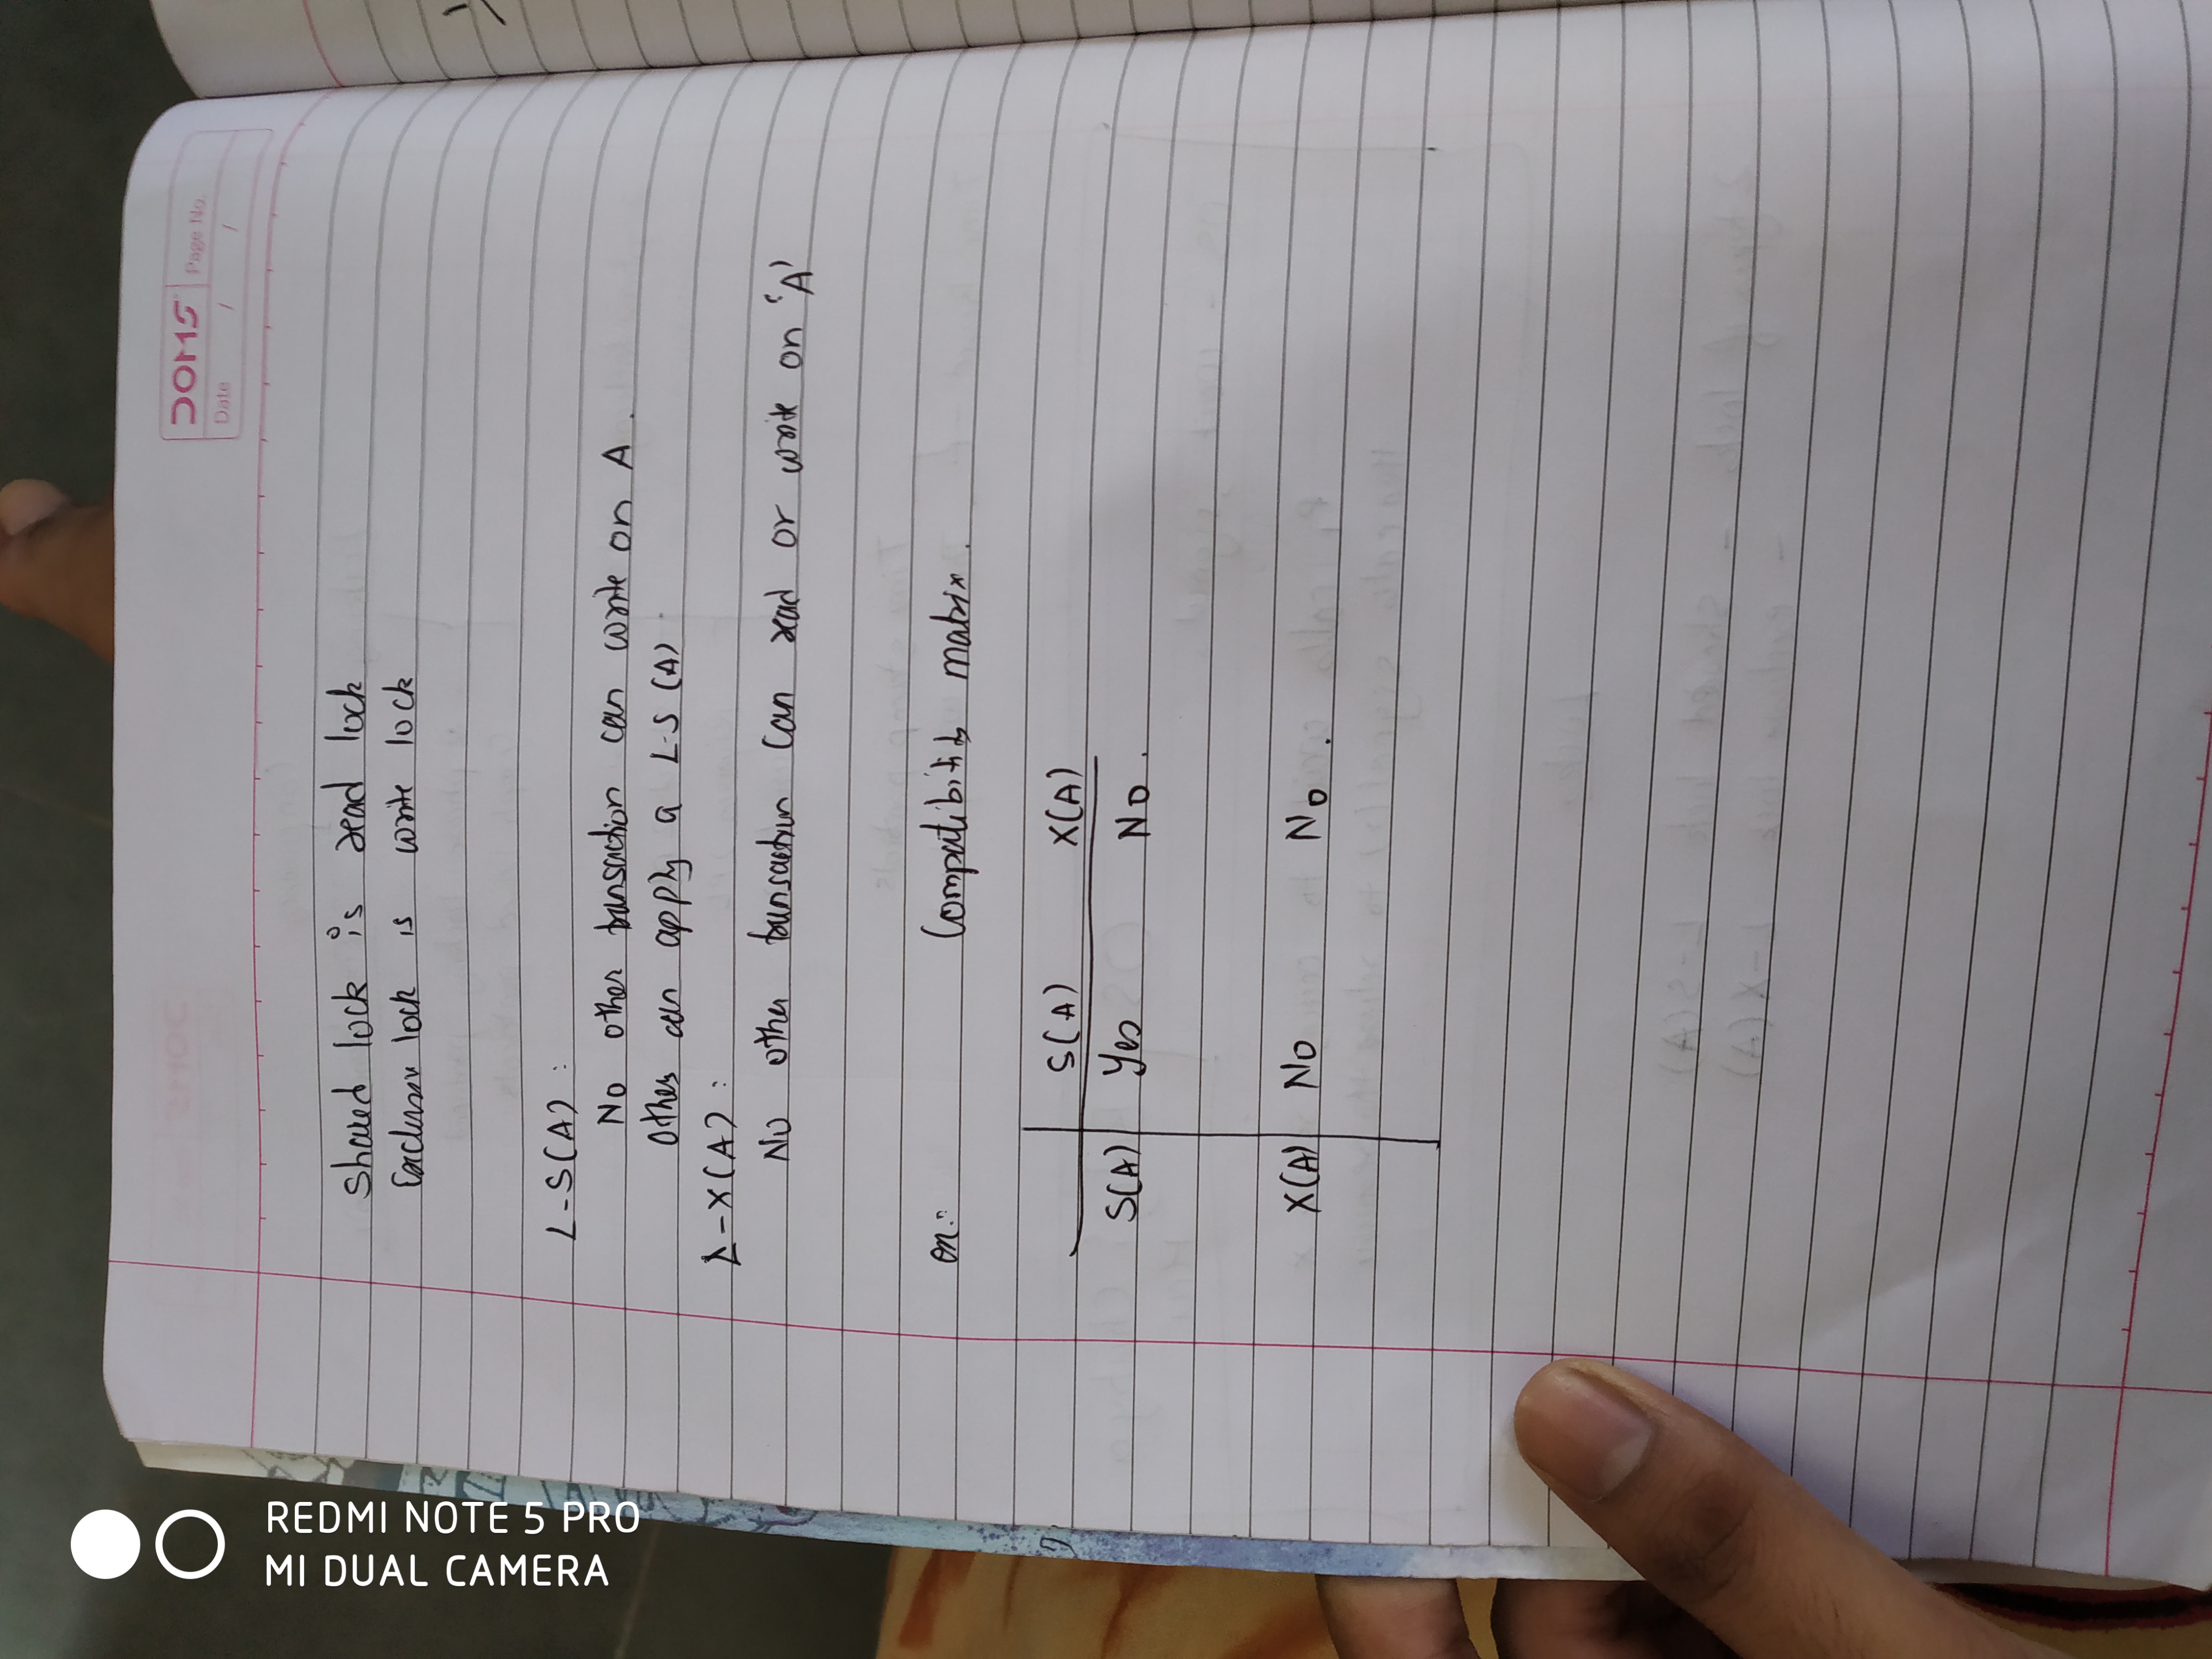 DOMS Page No.
Date / /
Shared lock is read lock
Exclusive lock is write lock
L-S(A) :
No other transaction can write on A.
Others can apply a L-S (A).
L-X(A) :
No other transaction can read or write on 'A'
Compatibility matrix.
S(A) X(A)
S(A) Yes No.
X(A) No No.
REDMI NOTE 5 PRO
MI DUAL CAMERA